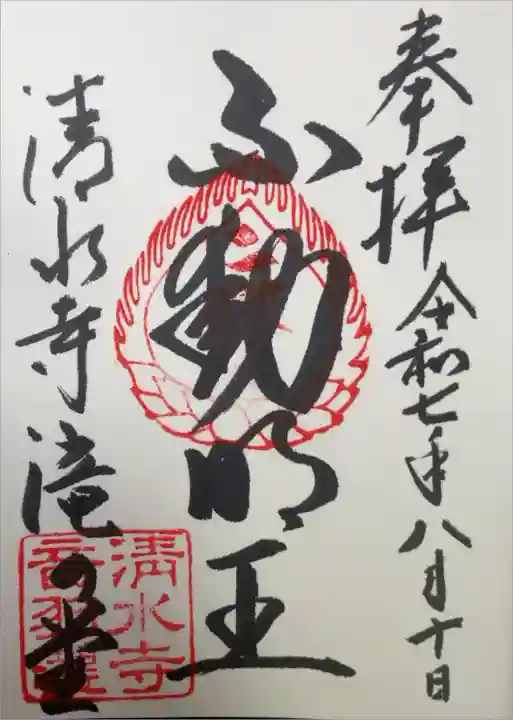 奉拝
令和七年八月十日
不動明王
清水寺滝の堂
清水寺
音羽瀧